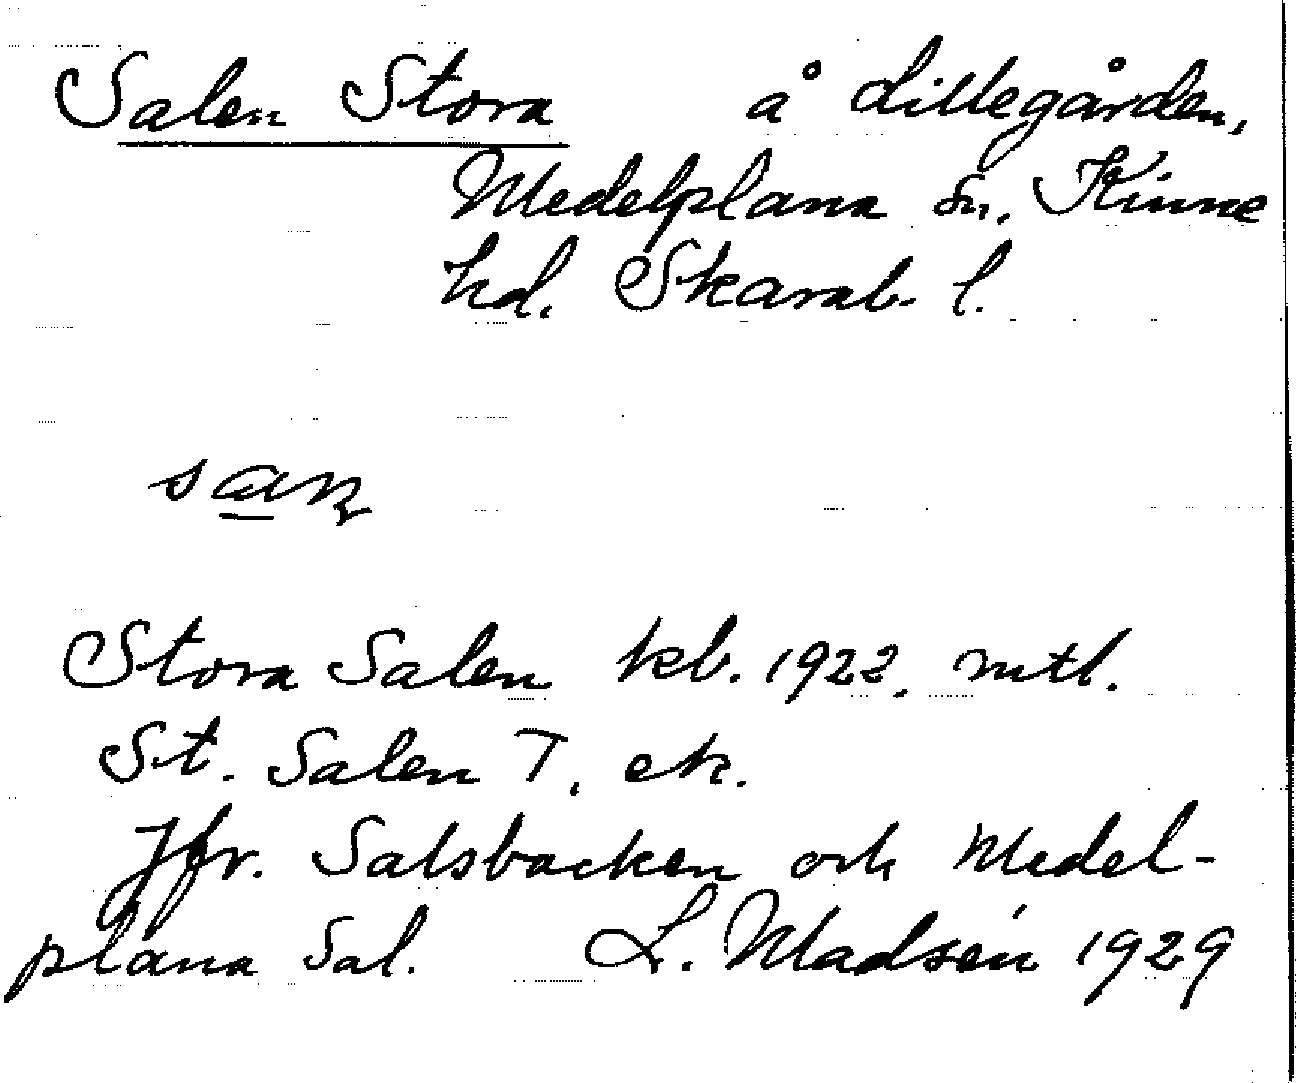 Salen Stora å Lillegården,
Medelplana sn, Kinne
hd. Skarab. l.
Stora Salen kb. 1922. mtl.
St. Salen T. ek.
Jfr. Salsbacken och Medel-
plana Sal. L. Madsén 1929